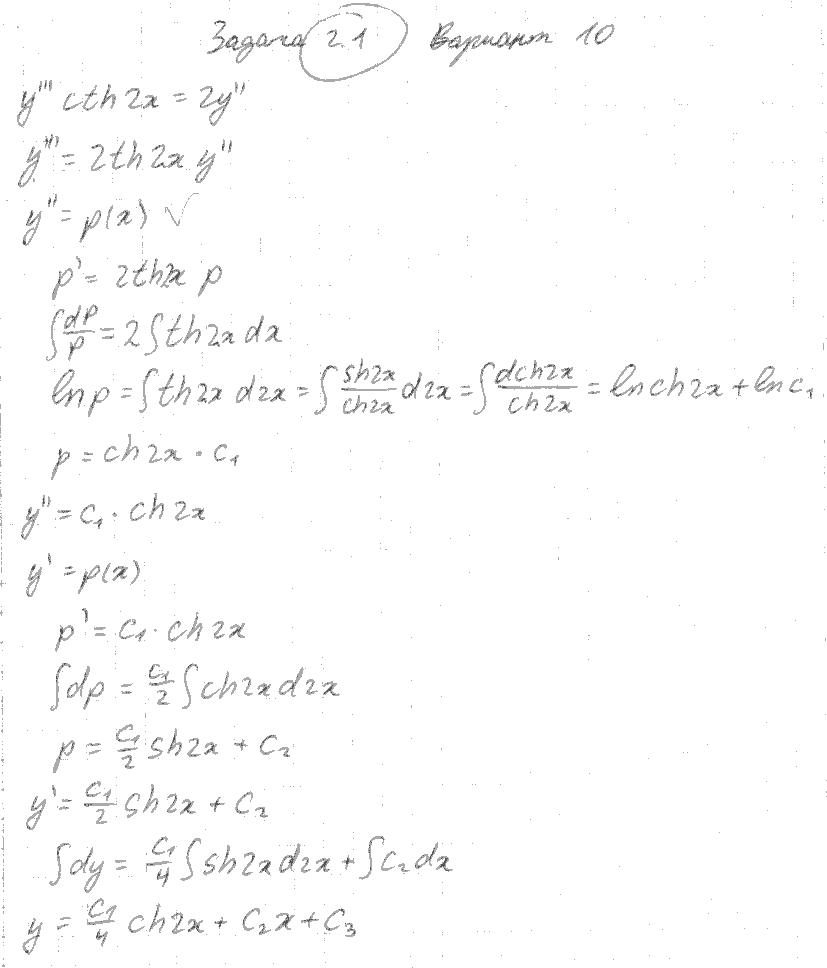 Задача 2.1 Вариант 10
y''' cth2x = 2y''
y''' = 2th2x y''
y'' = p(x) √
p' = 2th2x p
∫dp/p = 2∫th2x dx
ln p = ∫th2x d2x = ∫sh2x/ch2x d2x = ∫dch2x/ch2x = ln ch2x + ln c₁
p = ch2x · c₁
y'' = c₁ · ch2x
y' = p(x)
p' = c₁ · ch2x
∫dp = c₁/2 ∫ch2x d2x
p = c₁/2 sh2x + c₂
y' = c₁/2 sh2x + c₂
∫dy = c₁/4 ∫sh2x d2x + ∫c₂dx
y = c₁/4 ch2x + c₂x + c₃